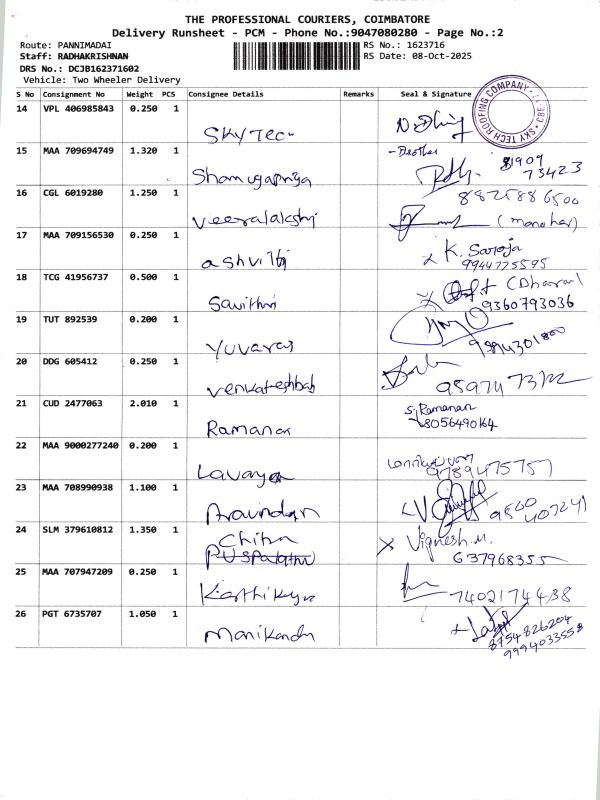 THE PROFESSIONAL COURIERS, COIMBATORE
Delivery Runsheet - PCM - Phone No.:9047080280 - Page No.:2
Route: PANNIMADAI RS No.: 1623716
Staff: RADHAKRISHNAN RS Date: 08-Oct-2025
DRS No.: DCJB162371602
Vehicle: Two Wheeler Delivery
S No Consignment No Weight PCS Consignee Details Remarks Seal & Signature
SKY TECH ROOFING COMPANY CBE
14 VPL 406985843 0.250 1
SKYTEC
15 MAA 709694749 1.320 1 - Brother
Shanugapriya 81909
73423
16 CGL 6019280 1.250 1 8825886500
Veeralakshi (manohar)
17 MAA 709156530 0.250 1 K. Saroja
ashvithi 9944775595
18 TCG 41956737 0.500 1 (Dharani)
Savithri 9360793036
19 TUT 892539 0.200 1
Yuvaraj 9994301800
20 DDG 605412 0.250 1
Venkateshbab
21 CUD 2477063 2.010 1 S. Ramanan
Ramanan 8056490164
22 MAA 9000277240 0.200 1
Lavanya 9789475757
23 MAA 708990938 1.100 1
Aravindan 9500
407241
24 SLM 379610812 1.350 1 Vignesh.M.
Chitra
Puspalathu 637968355
25 MAA 707947209 0.250 1
Karthikeyan 7402174438
26 PGT 6735707 1.050 1
Manikandan 8754826204
9994033558